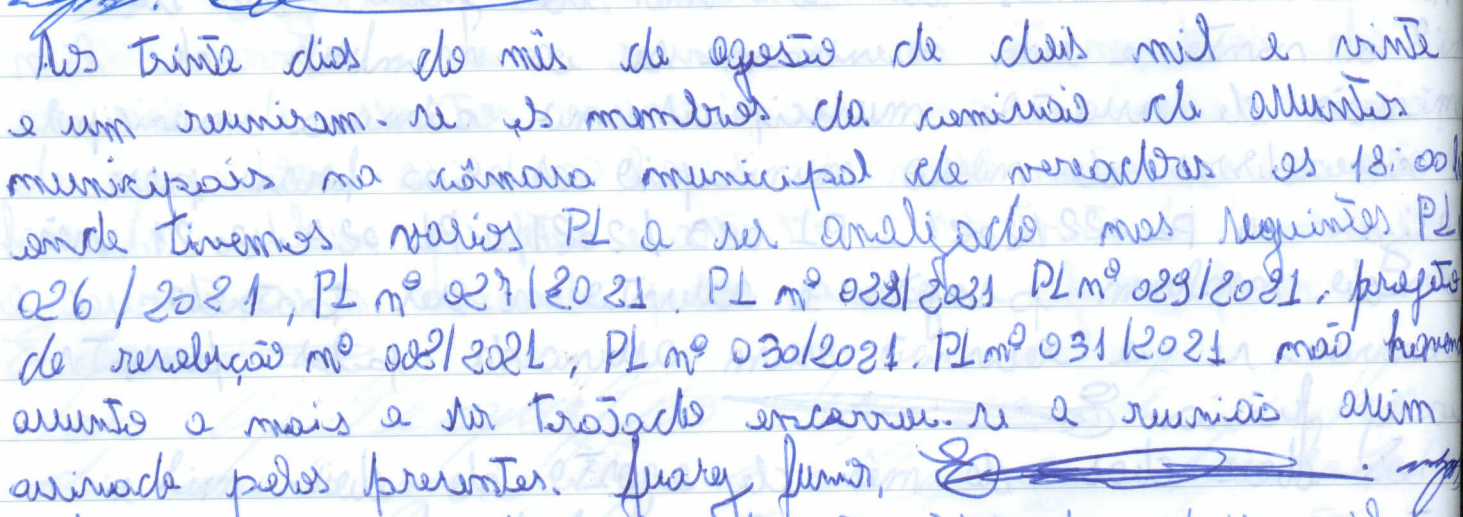 Aos trinta dias do mês de agosto de dois mil e vinte
e um reuniram-se os membros da comissão de assuntos
municipais na câmara municipal de vereadores as 18:00h
onde tivemos varios PL a ser analizado nas seguintes PL
026/2021, PL nº 027/2021. PL nº 028/2021 PL nº 029/2021. projeto
de resolução nº 002/2021, PL nº 030/2021. PL nº 031/2021 não
assunto a mais a ser tratado encerrou-se a reunião assim
assinado pelos presentes. Juarez Junior,